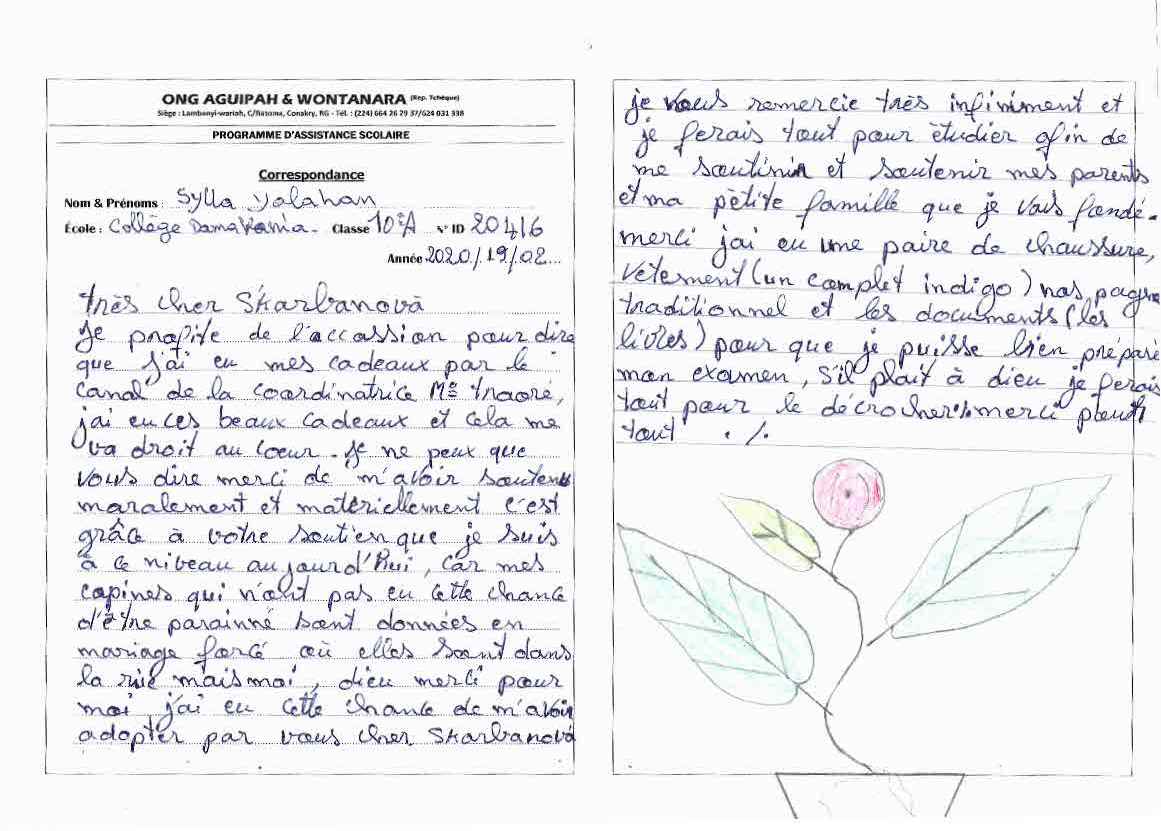 ONG AGUIPAH & WONTANARA (Rep. Tchèque)
Siège : Lambanyi-wariah, C/Ratoma, Conakry, RG - Tél. : (224) 664 26 79 37/624 031 338
PROGRAMME D'ASSISTANCE SCOLAIRE
Correspondance
Nom & Prénoms : Sylla Yalahan
École : Collège Damakania Classe 10e A N° ID 20416
Année 2020/19/02
très cher Skarbanovà
Je profite de l'accassion pour dire
que j'ai eu mes cadeaux par le
canal de la coordinatrice Me traoré,
j'ai eu ces beaux cadeaux et cela me
va droit au coeur. Je ne peux que
vous dire merci de m'avoir soutenu
maralement et matériellement c'est
grâce à votre soutien que je suis
à ce niveau aujourd'hui, car mes
capines qui n'ont pas eu cette chance
d'être parainné sont données en
mariage forcé où elles sont dans
la rue mais moi, dieu merci pour
moi j'ai eu cette chance de m'avoir
adopter par vous cher Skarbanovà
je vous remercie très infiniment et
je ferais tout pour étudier afin de
me soutinir et soutenir mes parents
et ma pètite famille que je vais fondé.
merci jai eu une paire de chaussure,
vêtement (un complet indigo) nos pagne
traditionnel et les documents (les
livres) pour que je puisse bien préparé
mon examen, s'il plait à dieu je ferais
tout pour le décrocher. merci
tout ./.